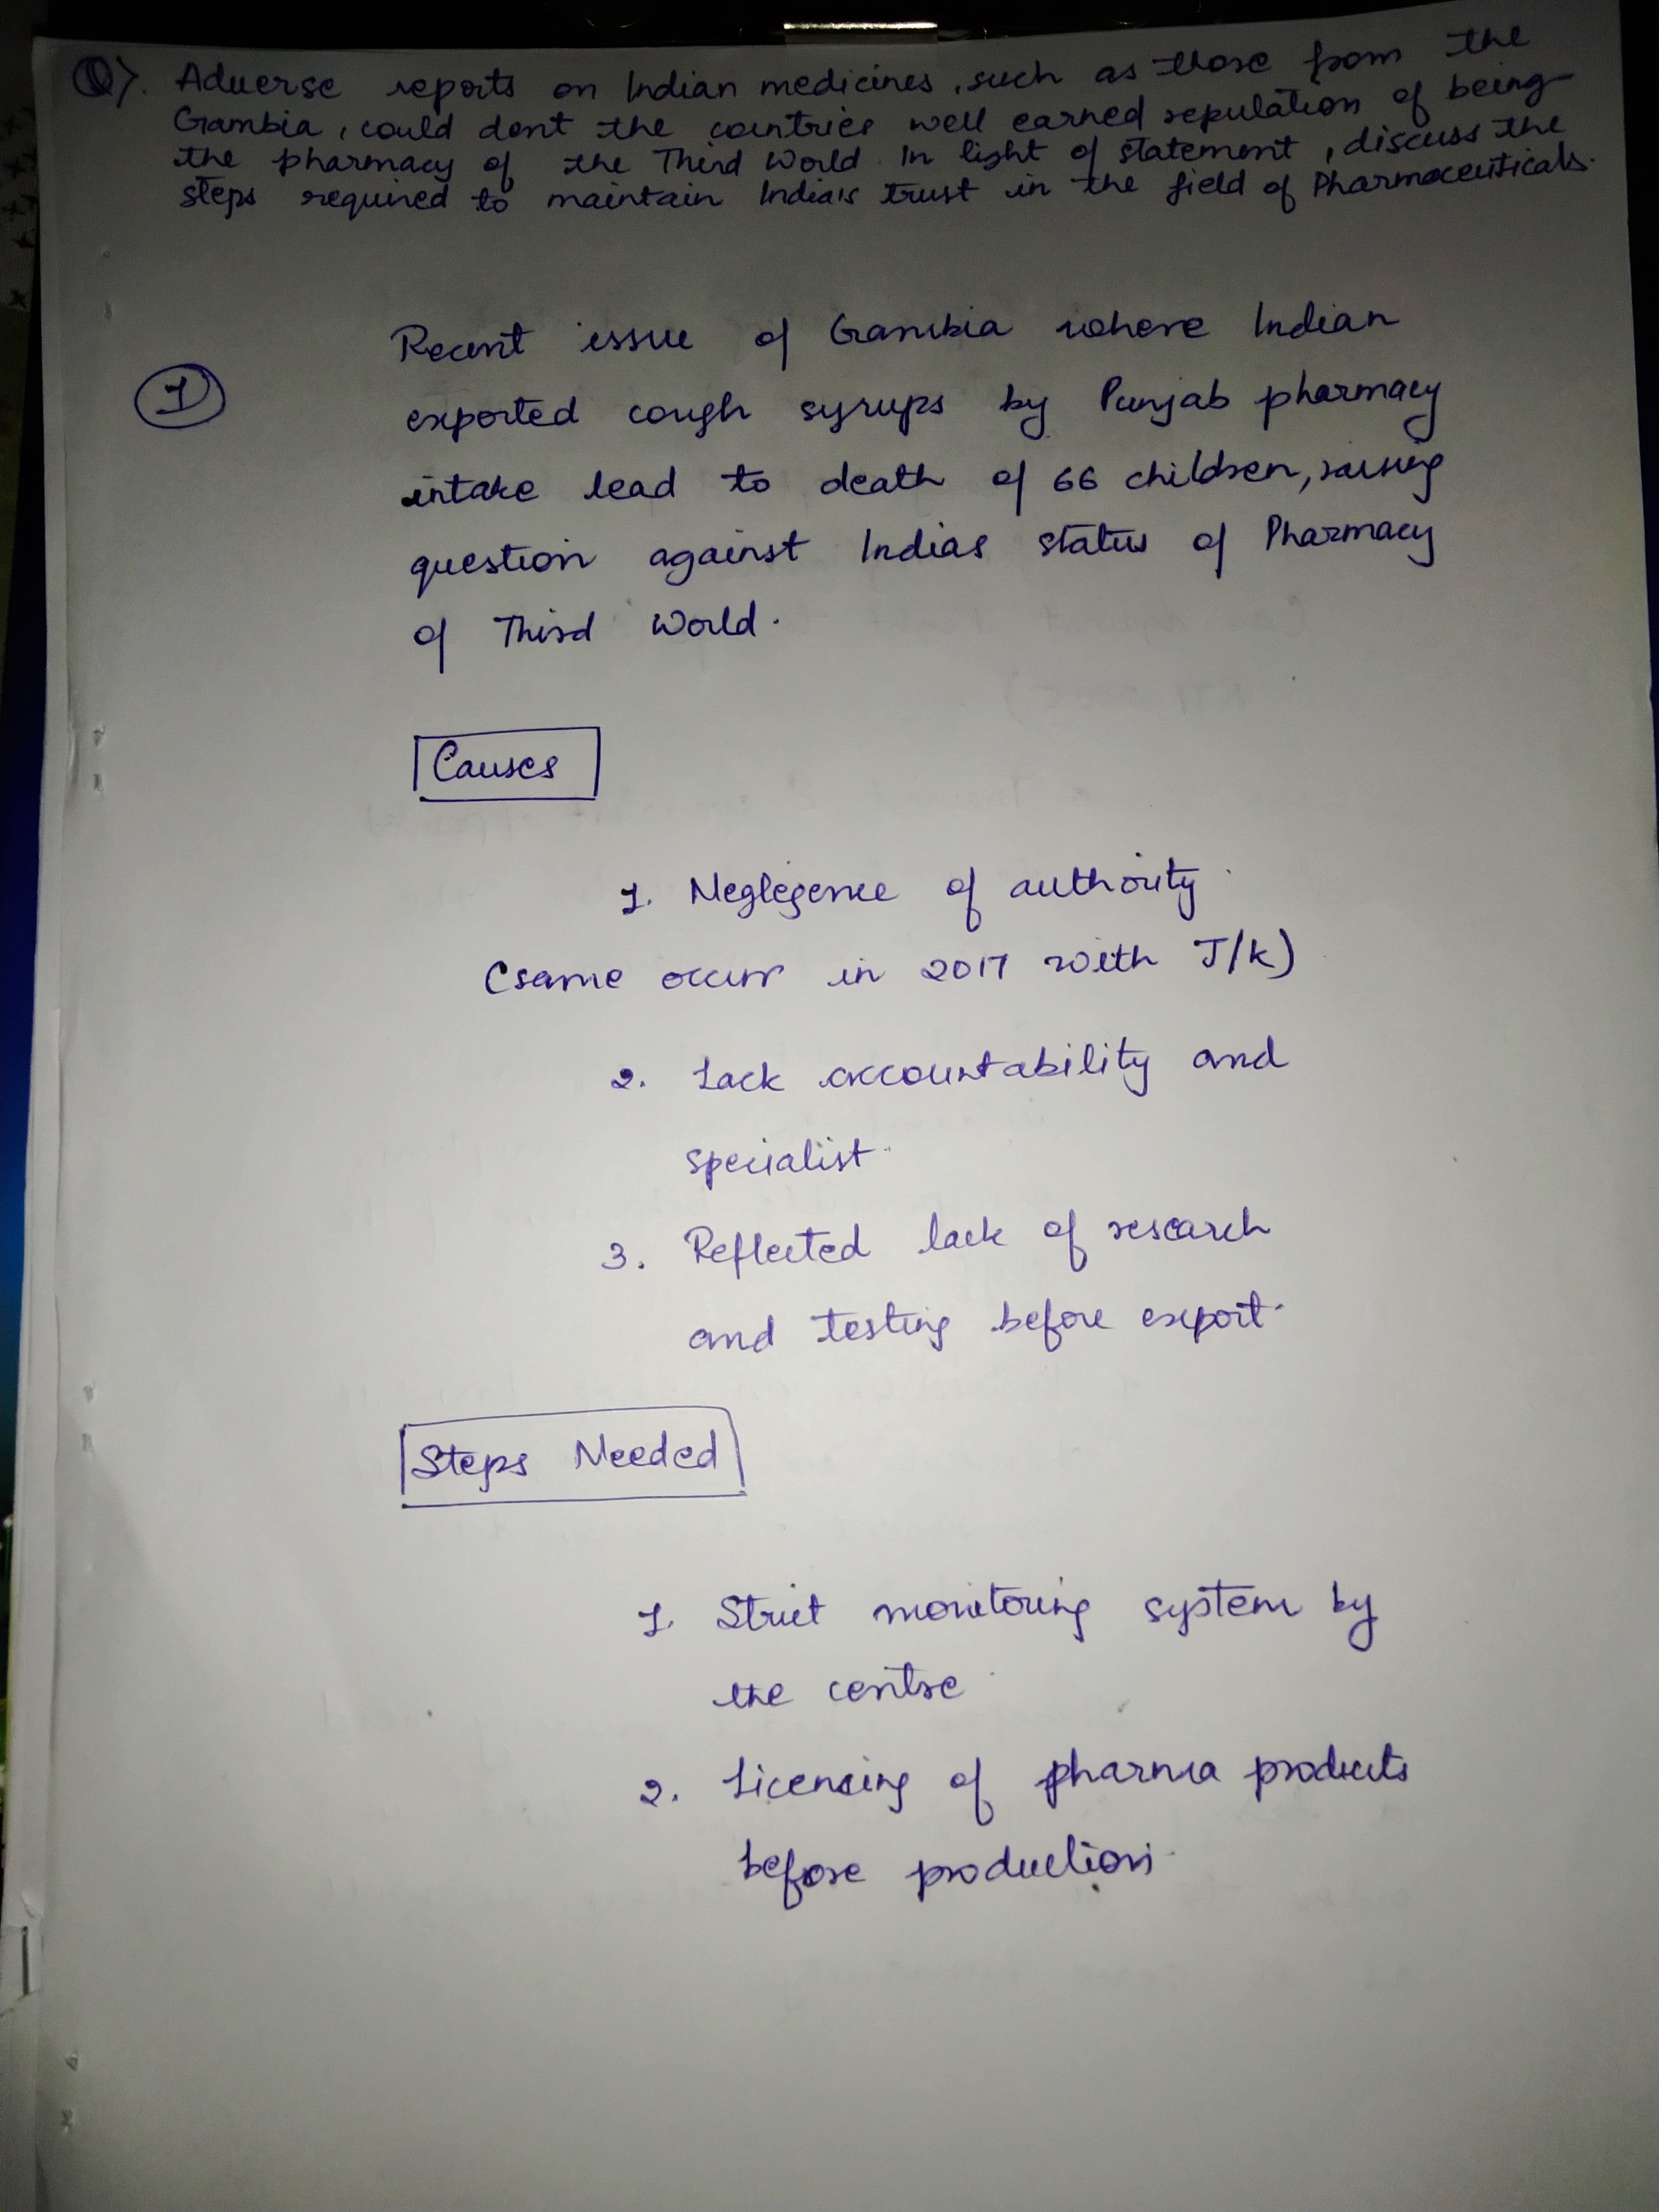 Q). Adverse reports on Indian medicines, such as those from the
Gambia, could dent the countries well earned repulation of being
the pharmacy of the Third World. In light of statement, discuss the
steps required to maintain India's trust in the field of Pharmaceuticals.
Recent issue of Gambia where Indian
1
exported cough syrups by Punjab pharmacy
intake lead to death of 66 children, raising
question against Indias status of Pharmacy
of Third World.
Causes
1. Neglegence of authority.
(same occur in 2017 with J/k)
2. Lack accountability and
specialist.
3. Reflected lack of research
and testing before export.
Steps Needed
1. Strict monitoring system by
the centre.
2. Licensing of pharma products
before production.